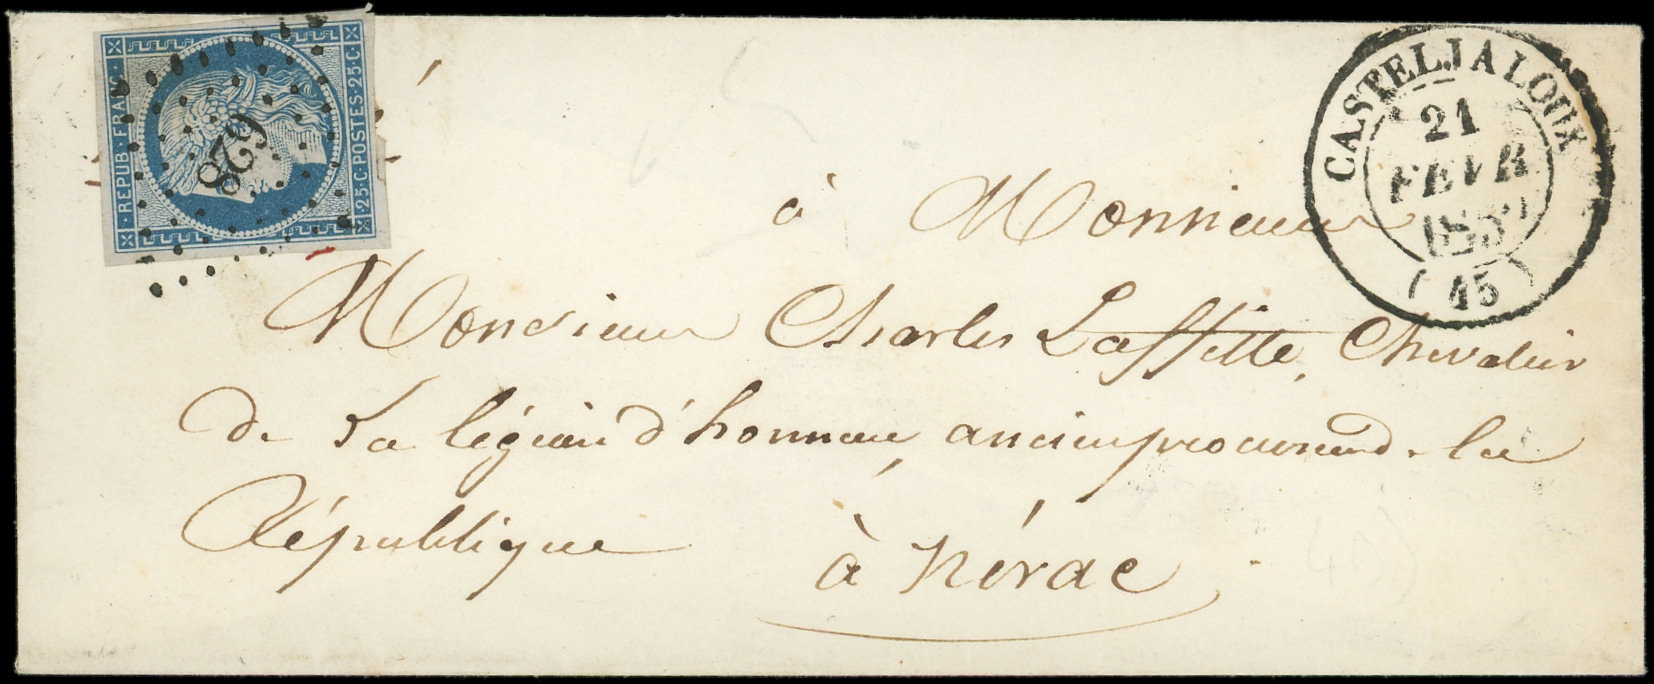 REPUB·FRANC·
25·C·POSTES·25·C·
628
CASTELJALOUX
21
FEVR
(45)
à Monsieur
Monsieur Charles Laffitte, Chevalier
de La légion d'honneur, ancien procureur de la
République
à Nérac